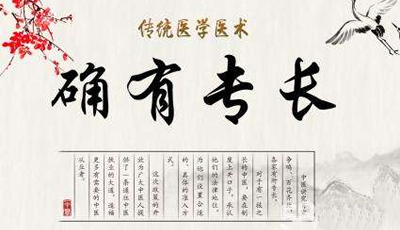 传统医学医术
确有专长
中医讲究
争鸣、百花齐放，
各家有所专长。
对于有一技之
长的中医，要在制
度上开口子，承认
他们的法律地位，
为他们设置合适
的、具体的准入方
式。
这次政策的开
放为广大中医人提
供了一条通往中医
执业的大道，造福
更多有需要的中医
从业者。